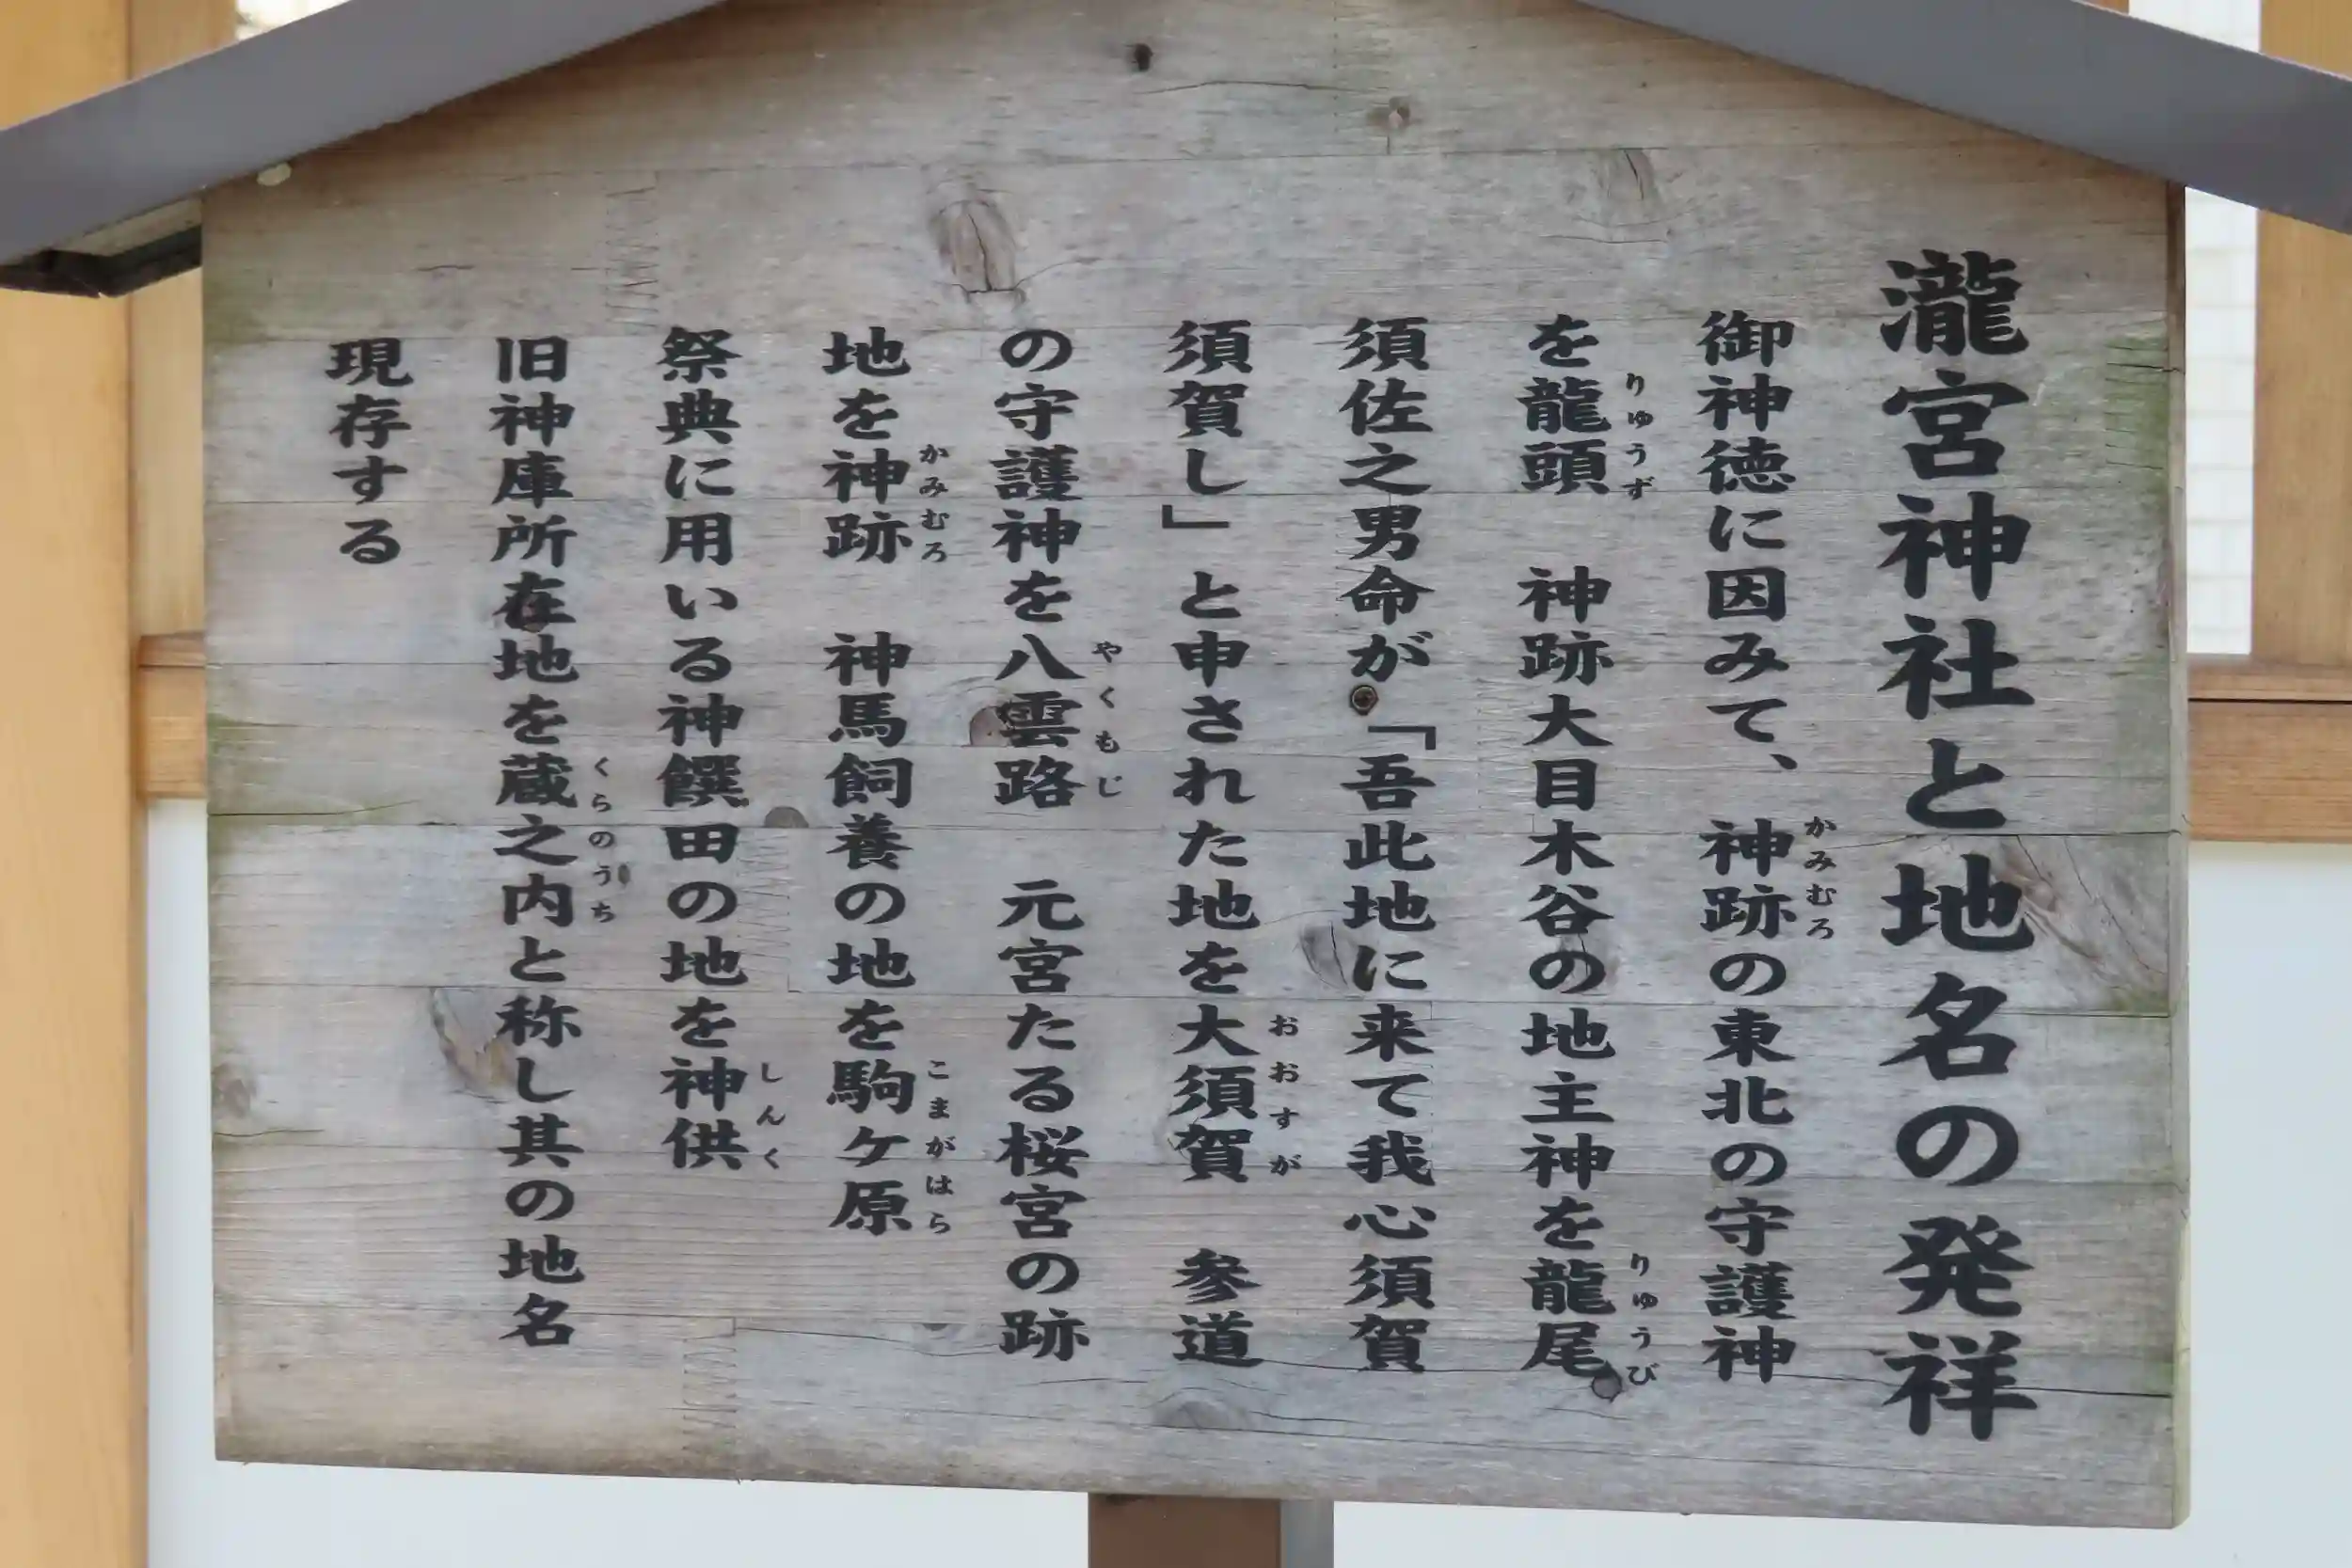 瀧宮神社と地名の発祥
御神徳に因みて、神跡の東北の守護神
かみむろ
を龍頭　神跡大目木谷の地主神を龍尾
りゅうず
りゅうび
須佐之男命が「吾此地に来て我心須賀
須賀し」と申された地を大須賀　参道
おおすが
の守護神を八雲路　元宮たる桜宮の跡
やくもじ
地を神跡　神馬飼養の地を駒ヶ原
かみむろ
こまがはら
祭典に用いる神饌田の地を神供
しんく
旧神庫所在地を蔵之内と称し其の地名
くらのうち
現存する